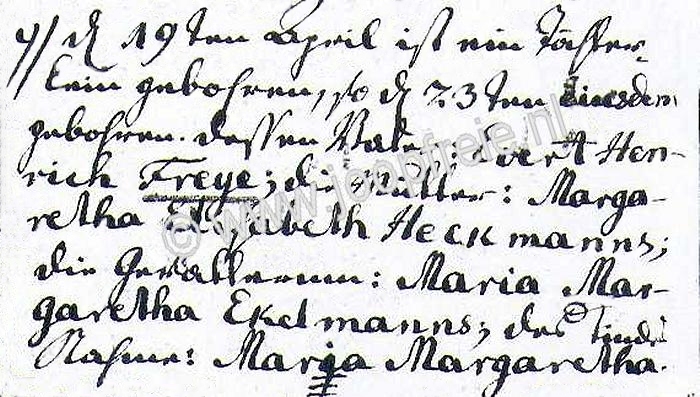 4// d 19ten April ist ein Töchter-
lein gebohren, so d 23ten
gebohren. dessen Vater: Evert Hen-
rich Freye; die Mutter: Marga-
retha Elysabeth Heckmanns;
die Gevatterinn: Maria Mar-
garetha Ekelmanns; des Kindes
Nahme: Maria Margaretha.
© www.joopfreie.nl